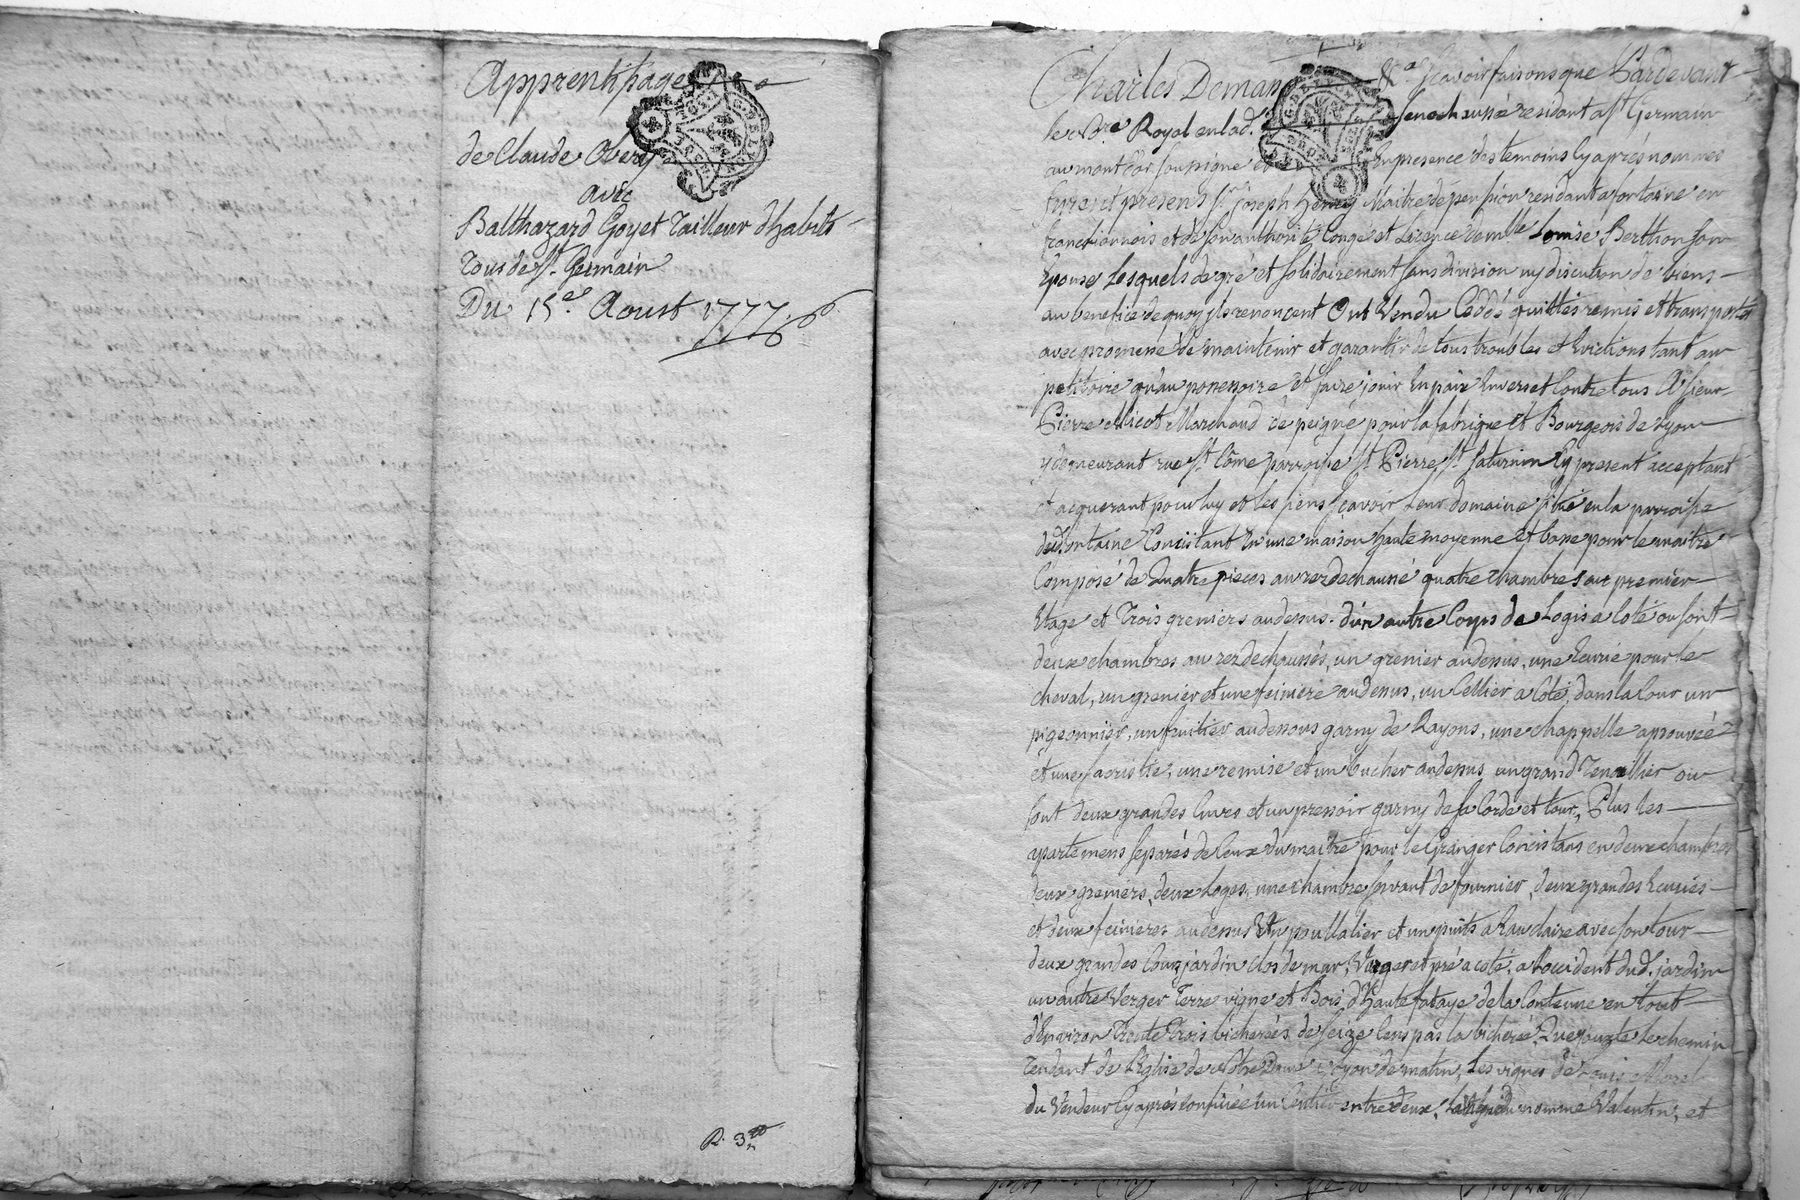 Apprentissage
de Claude Obery
avec
Balthazard Goyet Tailleur d'habits
Tous de St. Germain
Du 15e. Aoust 1777
R. 3
Charles Deman &a. Scavoir faisons que Pardevant
le nre Royal en lad. Senechaussé residant a St. Germain
au mont d'or soussigné et en presence des temoins cy après nommés
furent presens Sr. Joseph Henry Maitre de pension residant a fontaine en
franc lionnois et de son authorité Congé et Licence demlle Louise Berthon son
Epouse Lesquels de gré et solidairement sans division ny discution de biens
au benefice de quoy ils renoncent Ont Vendu Ceddé quittés remis et transportés
avec promesse de maintenir et garantir de tous troubles et Evictions tant au
petitoire qu'au possessoire et faire jouir En paix Envers et Contre tous A Sieur
Pierre Micot Marchand de peigne pour la fabrique et Bourgeois de Lyon
y demeurant rue St. Côme parroisse St. Pierre St. Saturnin Cy present acceptant
et acquerant pour luy et les siens Scavoir Leur domaine situé en la parroisse
dud. fontaine Consistant En une maison haute moyenne et basse pour le maitre
Composé de Quatre pieces au rez de chaussé quatre chambres au premier
Etage et Trois greniers au dessus. d'un autre Corps de Logis a coté ou sont
deux chambres au rez de chaussés, un grenier au dessus, une Ecurie pour le
cheval, un grenier et une feiniere au dessus, un Cellier a coté, dans la Cour un
pigeonnier, un fruitier au dessous garny de Rayons, une chappelle aprouvée
et une sacristie, une remise et un bucher au dessus un grand Tenaillier ou
sont deux grandes Cuves et un pressoir garny de sa Corde et tour, Plus les
apartemens separés de Ceux du maitre pour le Granger Concistans en deux chambres
deux greniers, deux Loges, une chambre servant de fournier, deux grandes Ecuries
et deux feinieres au dessus Un poullalier et un puits a Eau claire avec son tour
deux grandes Cours jardin clos de mur, Verger et pré a coté, a l'occident dud. jardin
un autre Verger Terre vigne et Bois d'haute futaye de la Contenue en tout
d'Environ Trente Trois bicherées de seize Cens pas la bicherée, Que jouxte le chemin
Tendant de l'Eglise de Notre Dame a Lyon de matin, Les vignes de Louis Morel
du Vendeur Cy après confinée un Sentier entre deux, du nommé Valentin, et